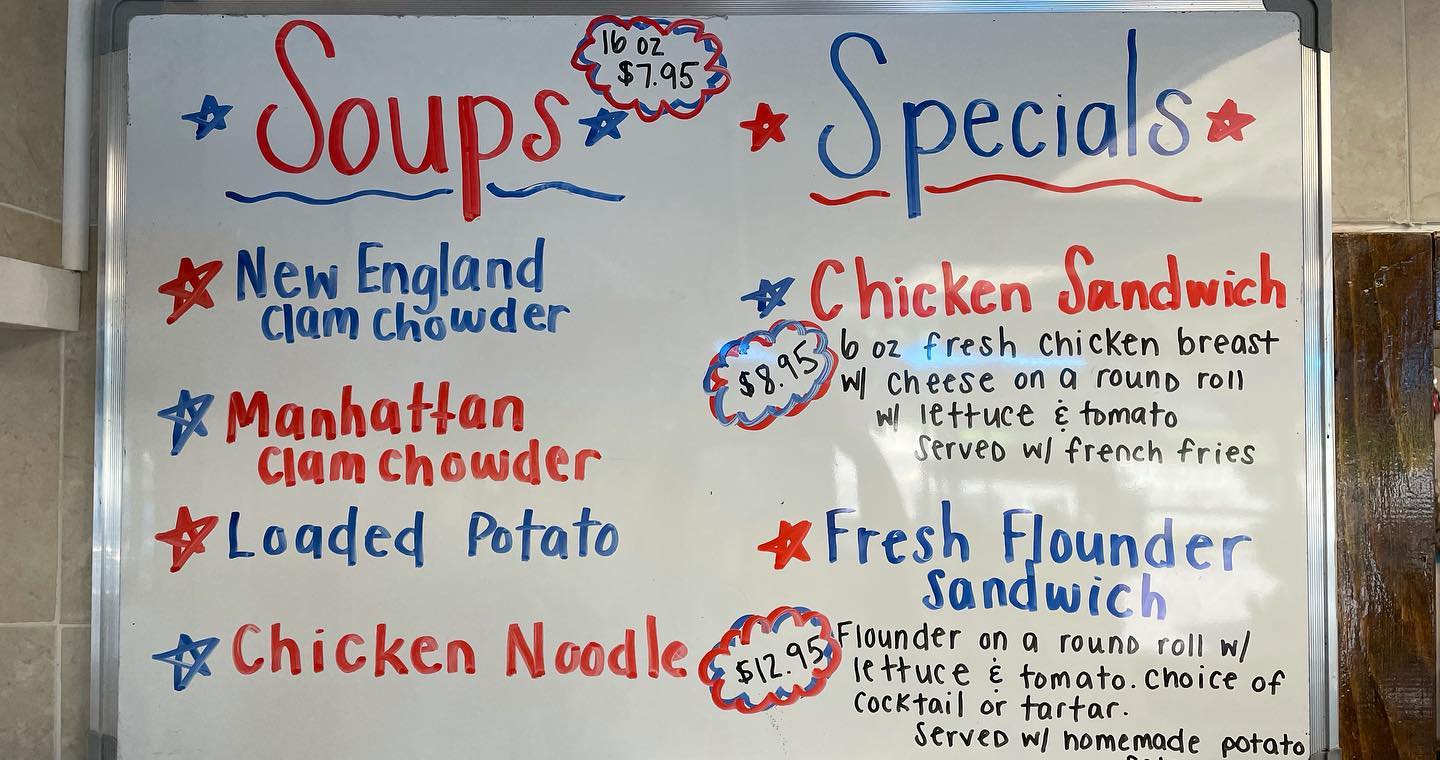 Soups
16 oz
$7.95
New England
clam chowder
Manhattan
clam chowder
Loaded Potato
Chicken Noodle
Specials
Chicken Sandwich
$8.95
6 oz fresh chicken breast
w/ cheese on a round roll
w/ lettuce & tomato
Served w/ french fries
Fresh Flounder
Sandwich
$12.95
Flounder on a round roll w/
lettuce & tomato. choice of
cocktail or tartar.
Served w/ homemade potato